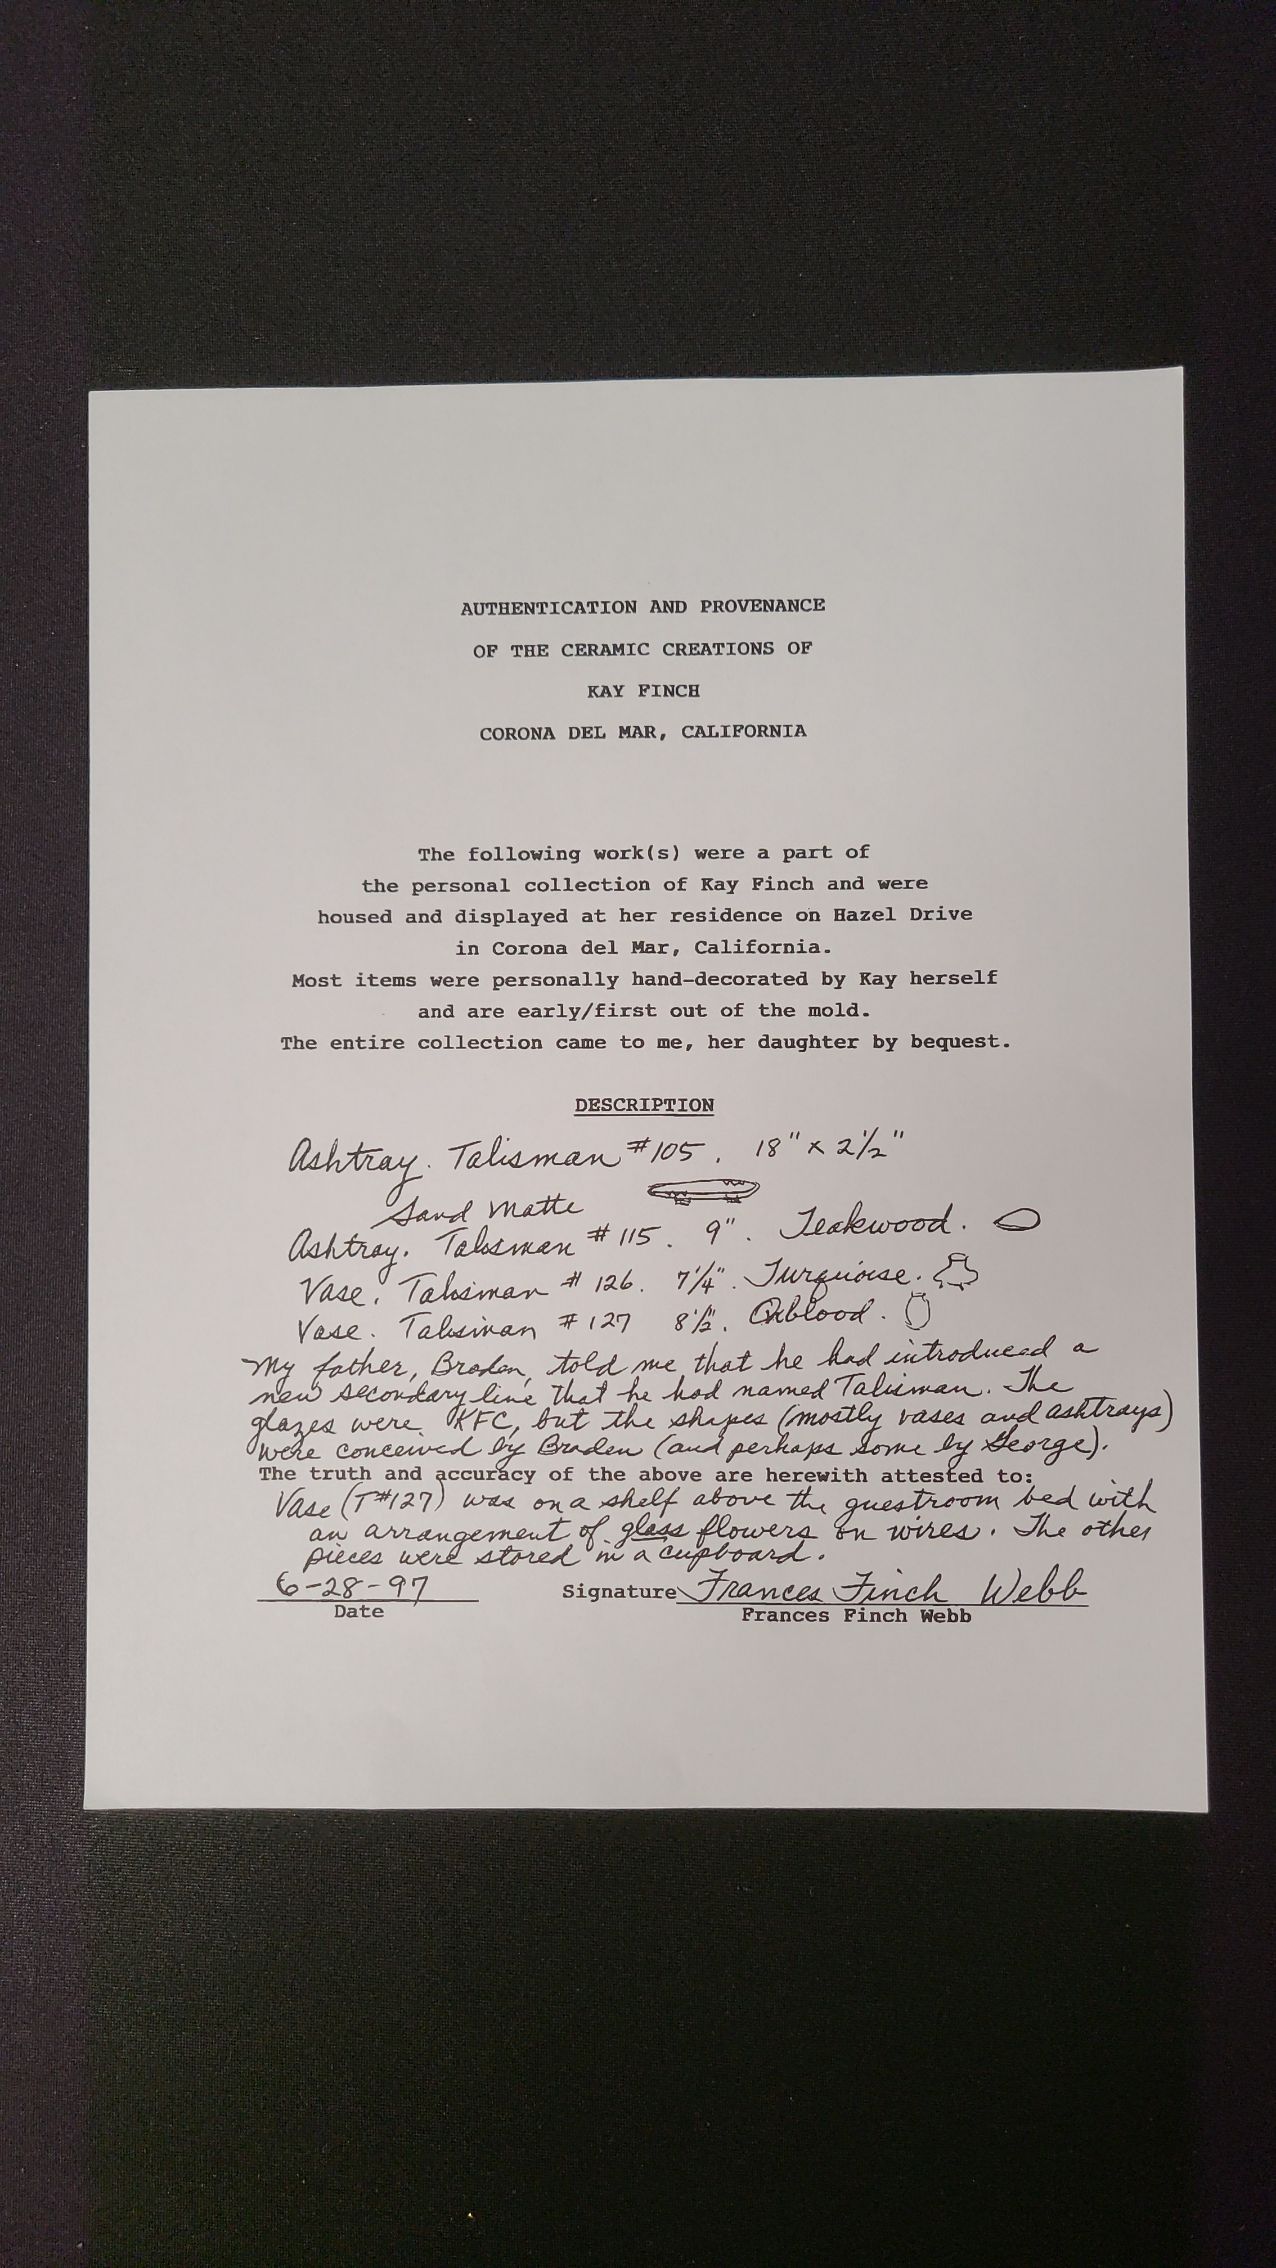 AUTHENTICATION AND PROVENANCE
OF THE CERAMIC CREATIONS OF
KAY FINCH
CORONA DEL MAR, CALIFORNIA
The following work(s) were a part of
the personal collection of Kay Finch and were
housed and displayed at her residence on Hazel Drive
in Corona del Mar, California.
Most items were personally hand-decorated by Kay herself
and are early/first out of the mold.
The entire collection came to me, her daughter by bequest.
DESCRIPTION
Ashtray. Talisman #105. 18" x 2½"
Sand Matte
Ashtray. Talisman #115. 9". Teakwood.
Vase. Talisman #126. 7¼". Turquoise.
Vase. Talisman #127 8½". Oxblood.
My father, Braden, told me that he had introduced a
new secondary line that he had named Talisman. The
glazes were KFC, but the shapes (mostly vases and ashtrays)
were conceived by Braden (and perhaps some by George).
The truth and accuracy of the above are herewith attested to:
Vase (T#127) was on a shelf above the guestroom bed with
an arrangement of glass flowers on wires. The other
pieces were stored in a cupboard.
6-28-97 Signature Frances Finch Webb
Date Frances Finch Webb